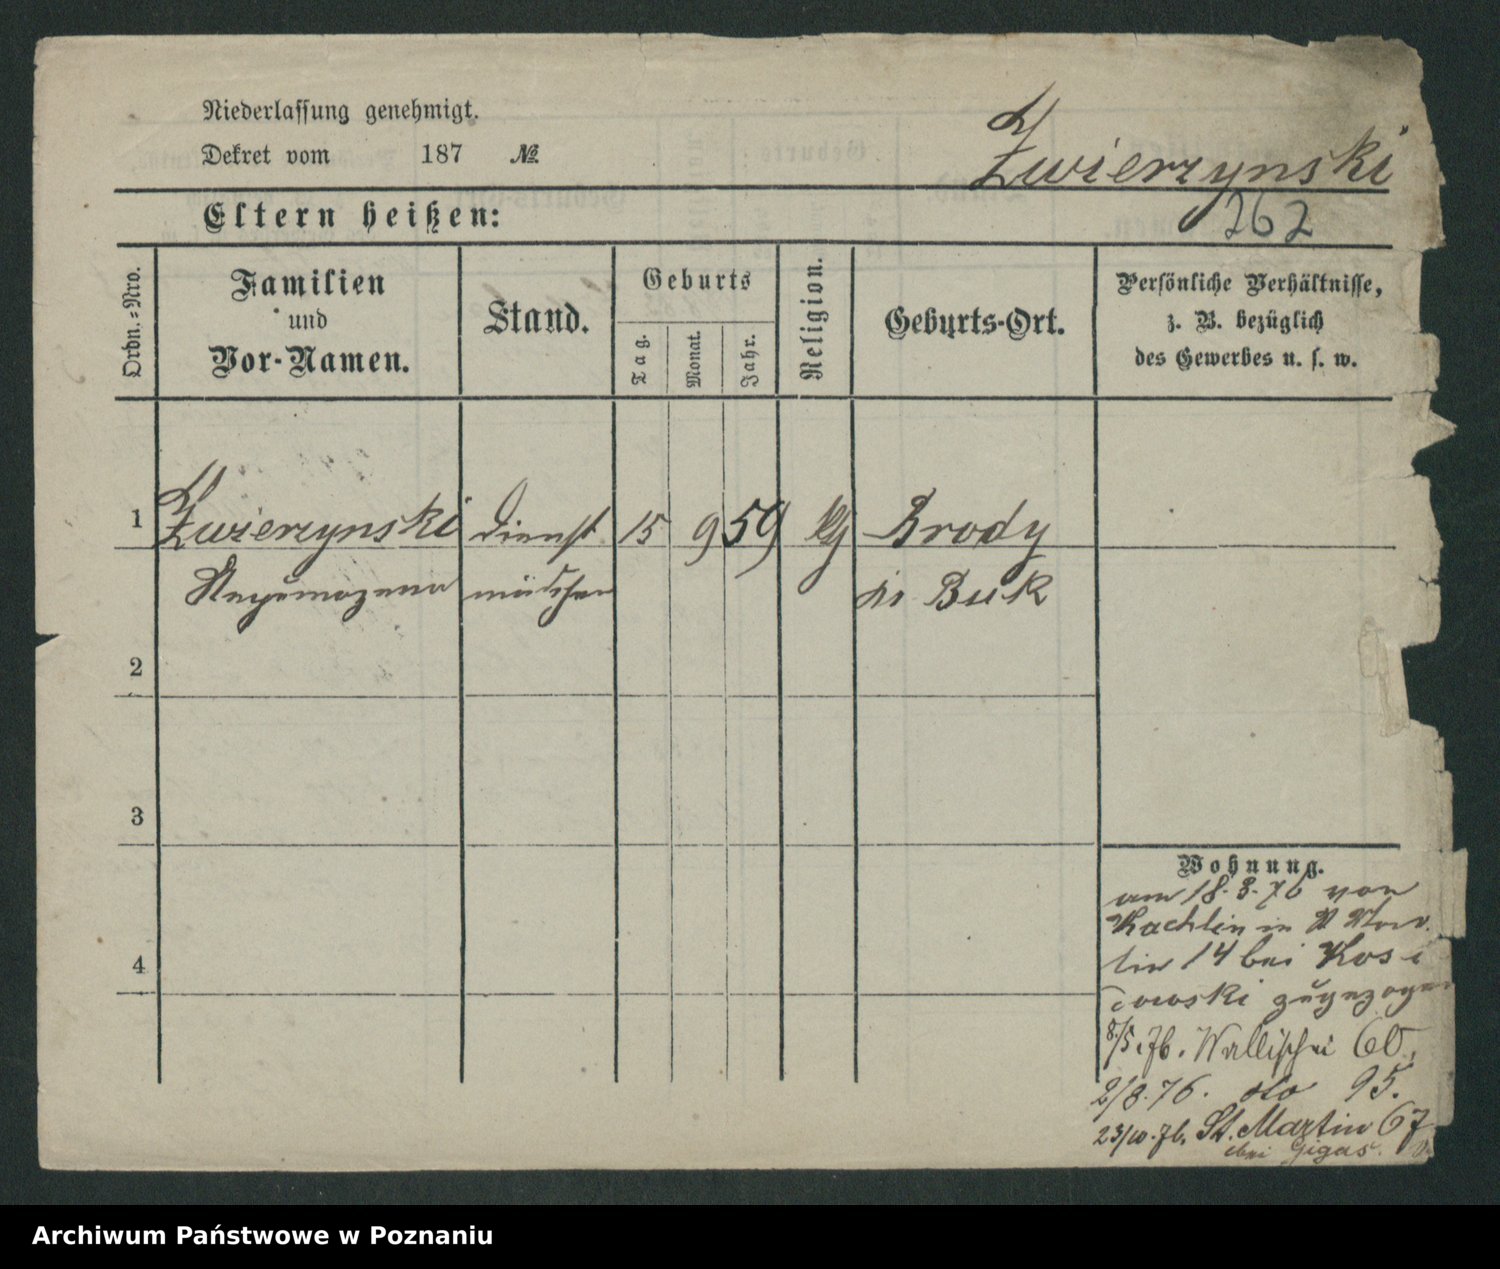 Niederlassung genehmigt.
Dekret vom 187 №
Zwierzynski
262
Eltern heißen:
Ordn.-Nro.
Familien und Vor-Namen.
Stand.
Geburts
Tag.
Monat.
Jahr.
Religion.
Geburts-Ort.
Persönliche Verhältnisse,
z. B. bezüglich
des Gewerbes u. s. w.
1 Zwierzynski Dienst 15 9 59 kg Brody
mädchen in Buk
2
3
4
Wohnung.
am 18. 3. 76 von
Kachlin in
14 bei Kos
owski zugezogen
8/5. 76. Wallischei 60,
2/8. 76. dto 95.
23/10. 76. St. Martin 67
bei Gigas.
Archiwum Państwowe w Poznaniu